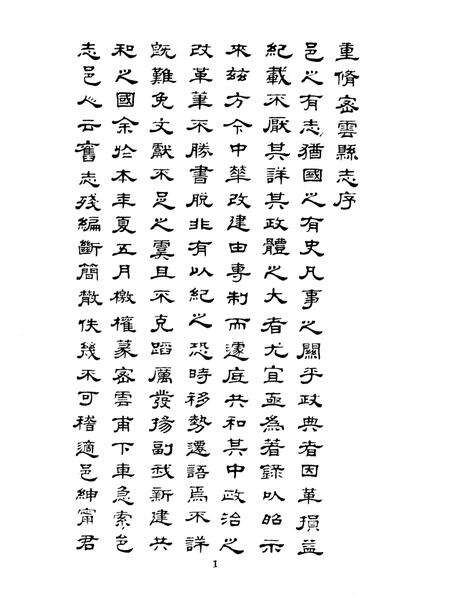 重脩密雲縣志序
邑之有志猶國之有史凡事之關乎政典者因革損益
紀載不厭其詳其政體之大者尤宜亟為著錄以昭示
來茲方今中華改建由專制而遽底共和其中政治之
改革筆不勝書脫非有以紀之恐時移勢遷語焉不詳
既難免文獻不足之虞且不克蹈厲發揚副我新建共
和之國余於本年夏五月檄權篆密雲甫下車急索邑
志邑人云舊志殘編斷簡散佚幾不可稽適邑紳甯君
1